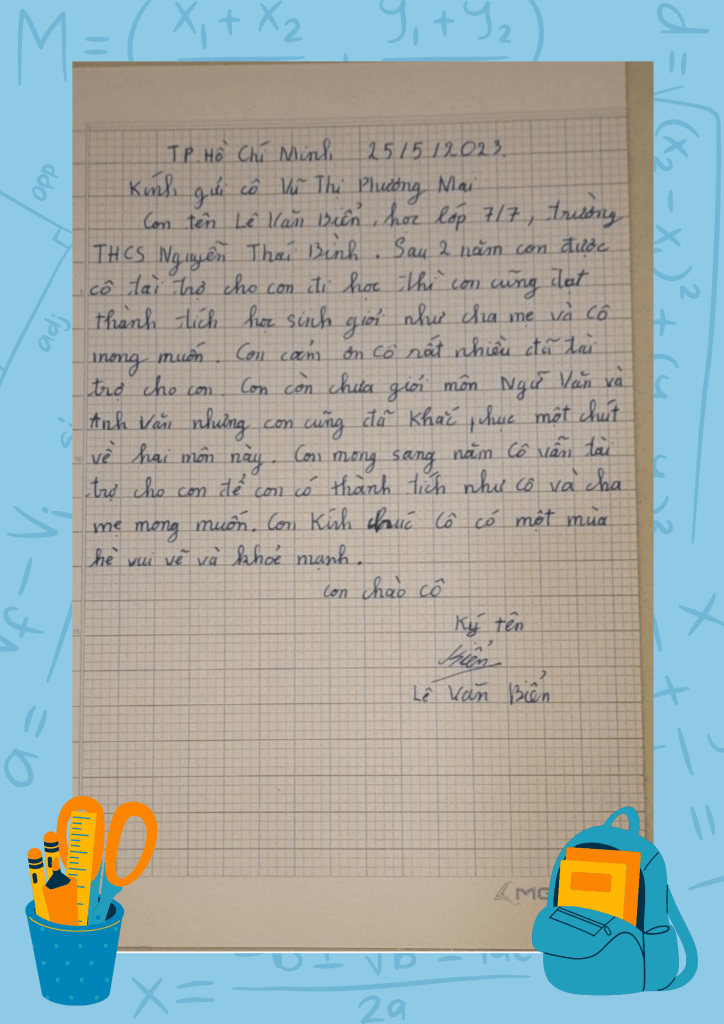 M = ( x₁ + x₂ , y₁ + y₂ )
opp
adj
TP. Hồ Chí Minh 25/5/2023.
Kính gửi cô Vũ Thị Phương Mai
Con tên Lê Văn Biển, học lớp 7/7, trường
THCS Nguyễn Thái Bình. Sau 2 năm con được
cô tài trợ cho con đi học thì con cũng đạt
thành tích học sinh giỏi như cha mẹ và cô
mong muốn. Con cảm ơn cô rất nhiều đã tài
trợ cho con. Con còn chưa giỏi môn Ngữ Văn và
Anh Văn nhưng con cũng đã khắc phục một chút
về hai môn này. Con mong sang năm cô vẫn tài
trợ cho con để con có thành tích như cô và cha
mẹ mong muốn. Con kính chúc cô có một mùa
hè vui vẽ và khoẻ mạnh.
Con chào cô
Ký tên
Biển
Lê Văn Biển
a = vf - vi
x =
2a